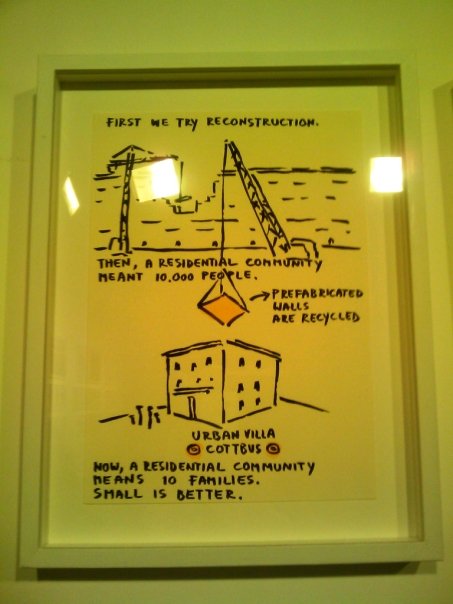 FIRST WE TRY RECONSTRUCTION.
THEN, A RESIDENTIAL COMMUNITY
MEANT 10.000 PEOPLE.
PREFABRICATED
WALLS
ARE RECYCLED
URBAN VILLA
COTTBUS
NOW, A RESIDENTIAL COMMUNITY
MEANS 10 FAMILIES.
SMALL IS BETTER.